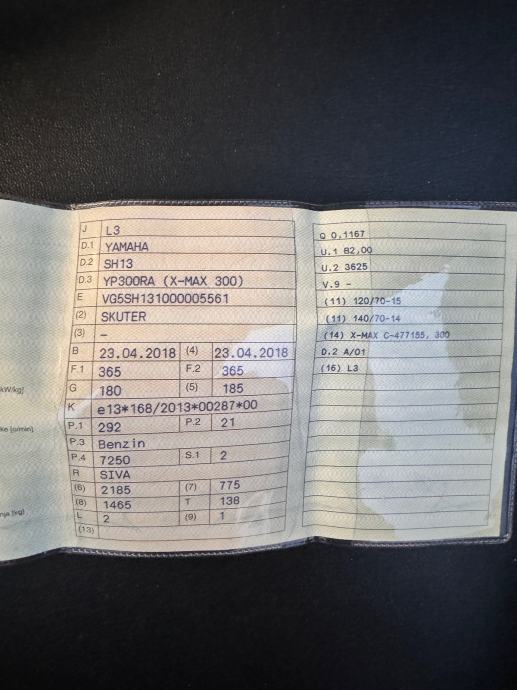 kW/kg]
ke [o/min]
nja [kg]
J L3
D.1 YAMAHA
D.2 SH13
D.3 YP300RA (X-MAX 300)
E VG5SH131000005561
(2) SKUTER
(3) –
B 23.04.2018 (4) 23.04.2018
F.1 365 F.2 365
G 180 (5) 185
K e13*168/2013*00287*00
P.1 292 P.2 21
P.3 Benzin
P.4 7250 S.1 2
R SIVA
(6) 2185 (7) 775
(8) 1465 T 138
L 2 (9) 1
(13)
Q 0,1167
U.1 82,00
U.2 3625
V.9 -
(11) 120/70-15
(11) 140/70-14
(14) X-MAX C-477155, 300
D.2 A/01
(16) L3